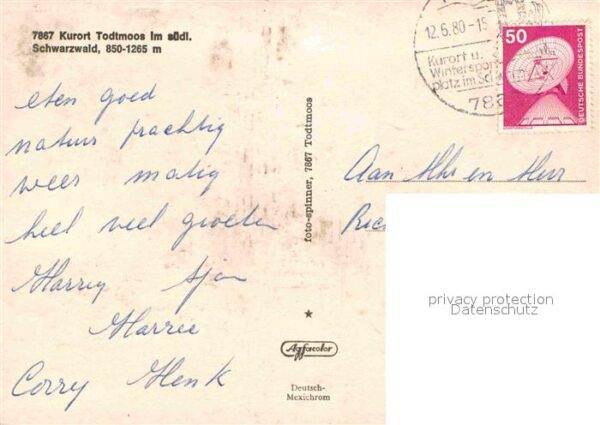 7867 Kurort Todtmoos im südl.
Schwarzwald, 850-1265 m
eten goed
natuur prachtig
weer matig
heel veel groeten
Harry Sjan
Harrie
Corry Henk
foto-spinner, 7867 Todtmoos
Agfacolor
Deutsch-
Mexichrom
12.6.80-15
Kurort u.
Wintersport
platz im
786
50
DEUTSCHE BUNDESPOST
Aan Mhr en Mevr
privacy protection
Datenschutz